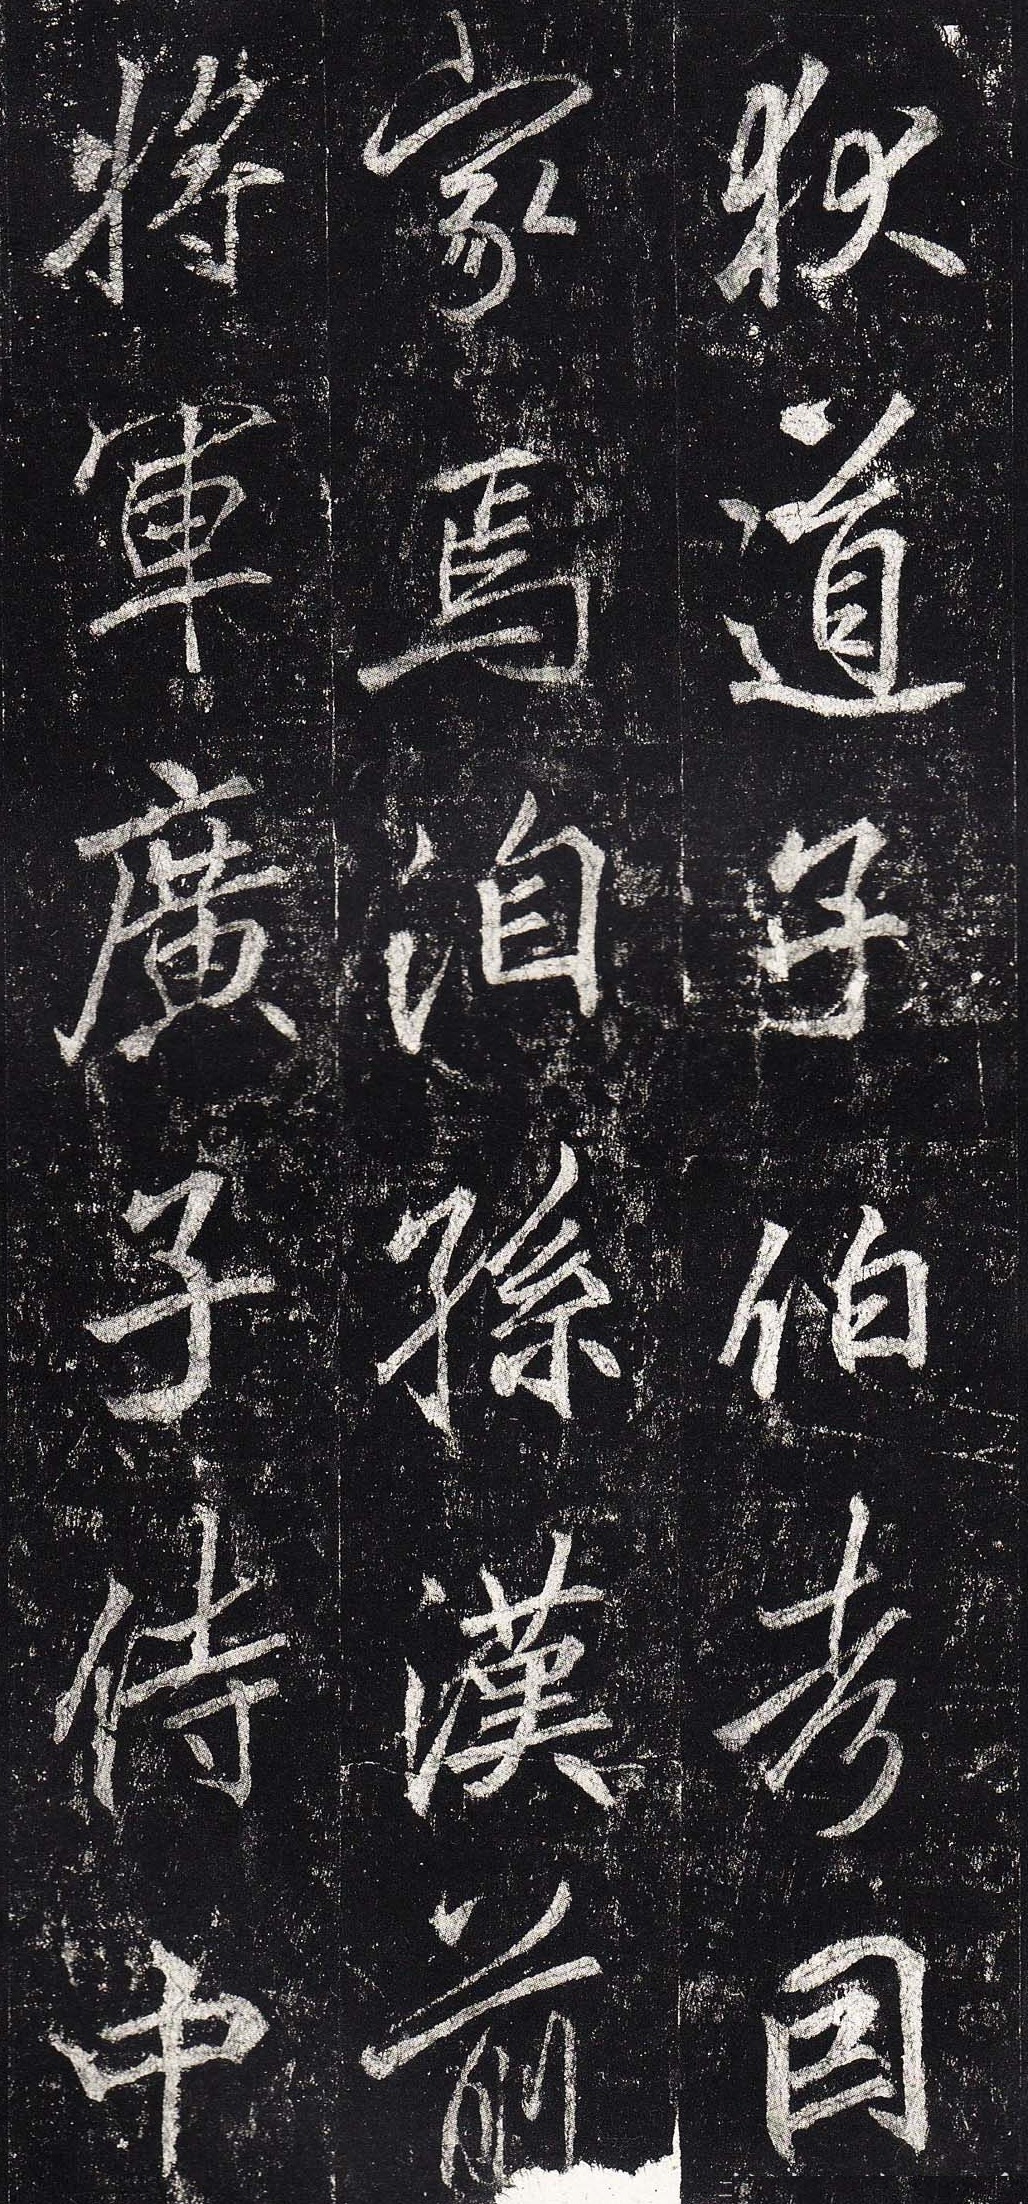 狄道子伯考因
家焉洎孫漢前
將軍廣子侍中